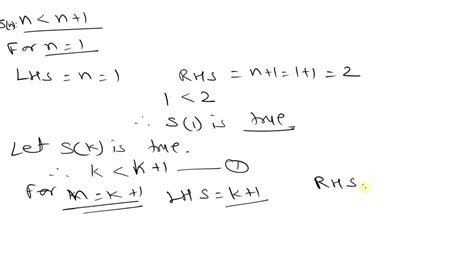 S(n): n < n+1
For n = 1
LHS = n = 1 RHS = n+1 = 1+1 = 2
1 < 2
∴ S(1) is true
Let S(k) is true.
∴ k < k+1 —— ①
For n = k+1 LHS = k+1 RHS =